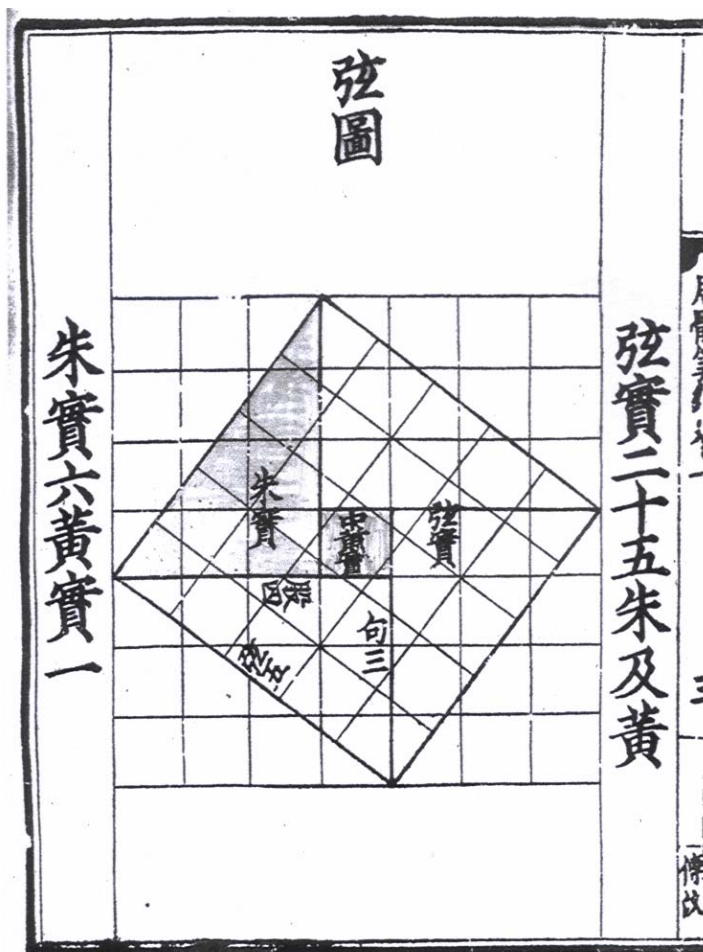 弦圖
弦實二十五朱及黄
弦實
中黄實
朱實
股四
句三
弦五
朱實六黄實一